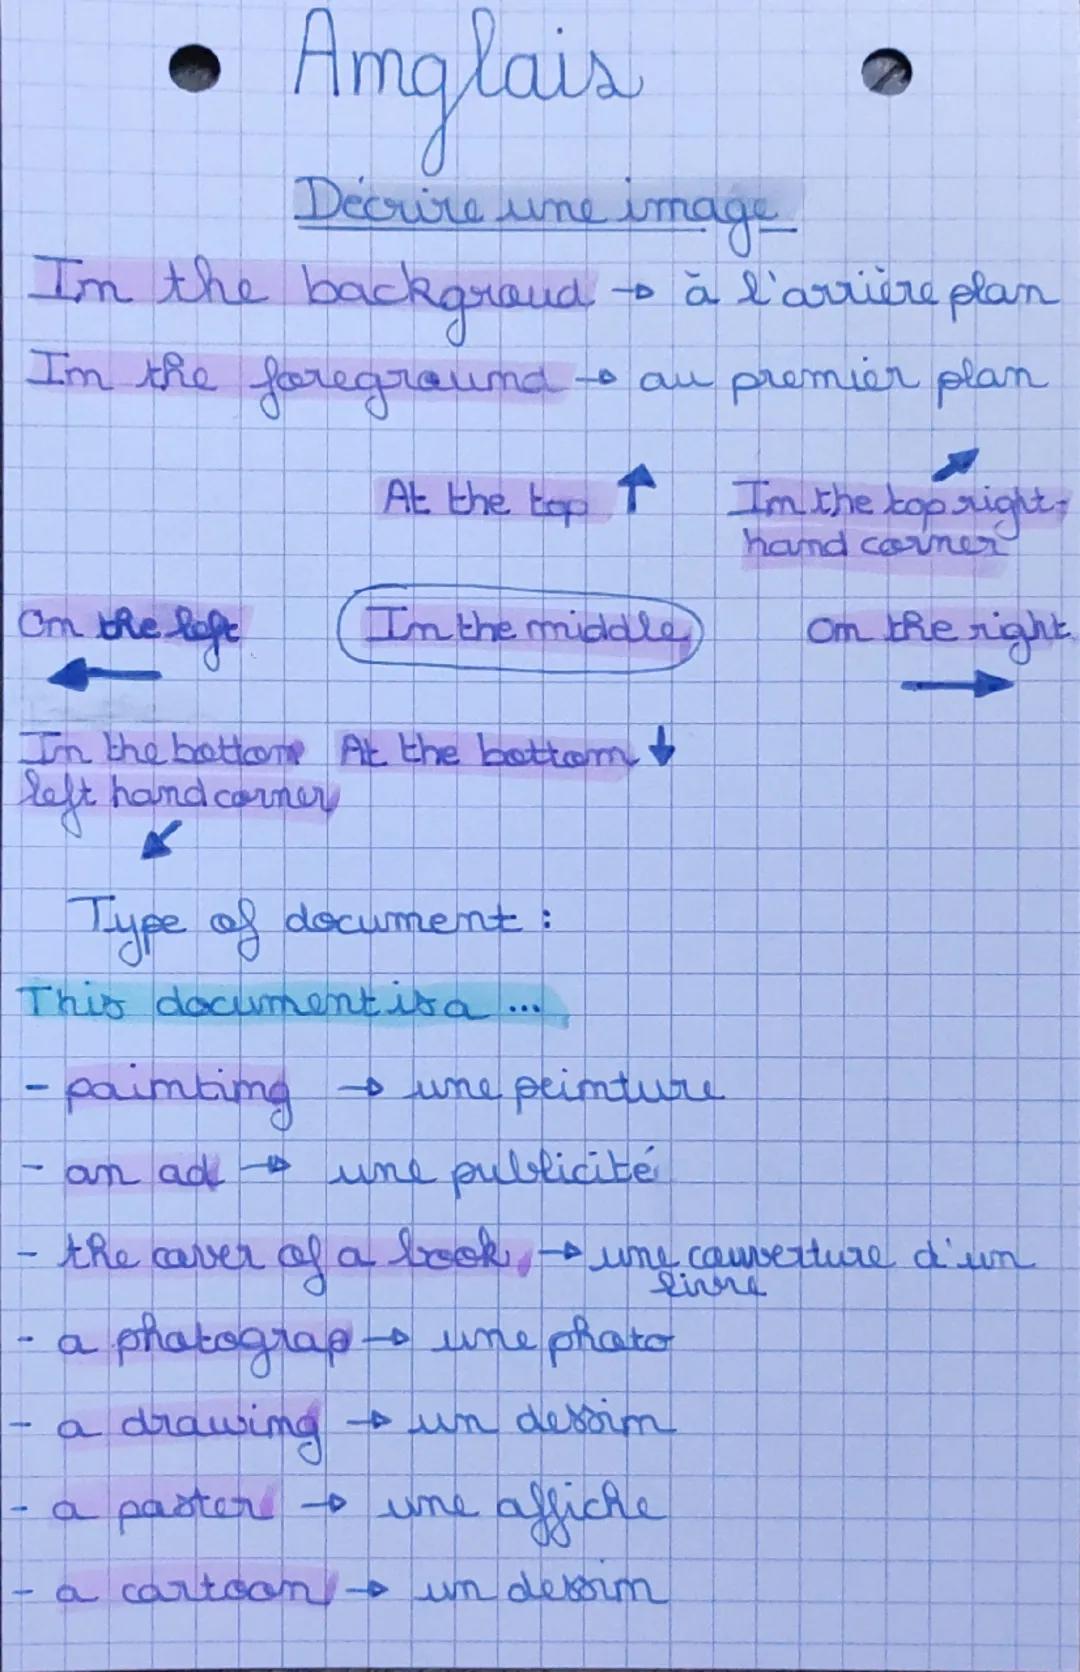 Anglais
Décrire une image
In the backgroud → à l'arrière plan
In the foreground → au premier plan
At the top ↑
In the top right-
hand corner
On the left
In the middle
On the right
←
→
In the bottom
left hand corner
↙
At the bottom ↓
Type of document :
This document is a ...
- painting → une peinture
- an ad → une publicité
- the cover of a book → une couverture d'un
livre
- a photograp → une photo
- a drawing → un dessin
- a poster → une affiche
- a cartoon → un dessin